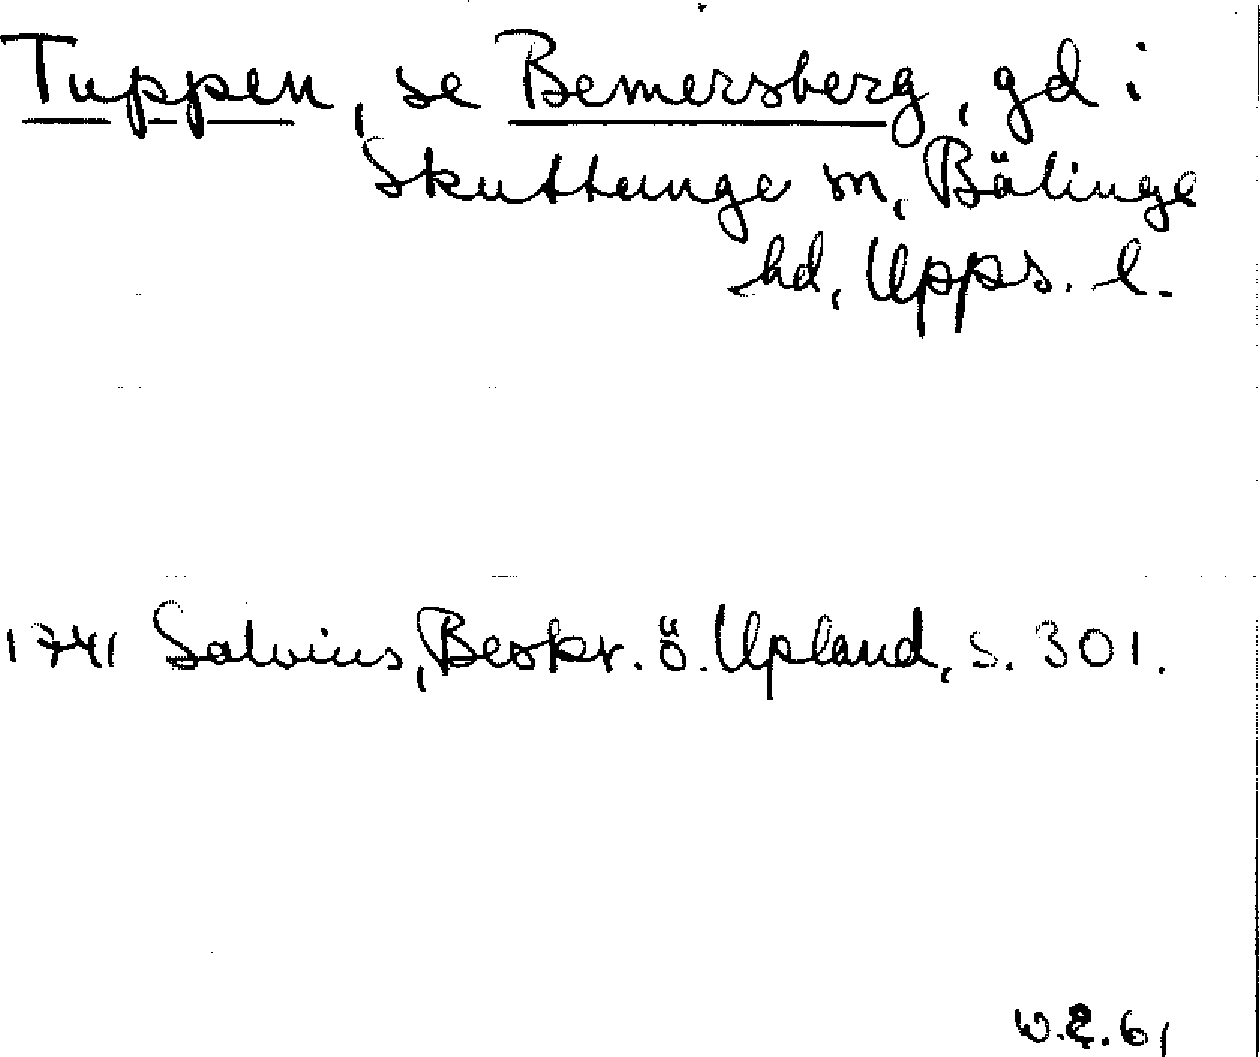 Tuppen, se Bemersberg, gd i
Skuttunge sn, Bälinge
hd, Upps. l.
1741 Salvius, Beskr. ö. Upland, s. 301.
W.E. 61